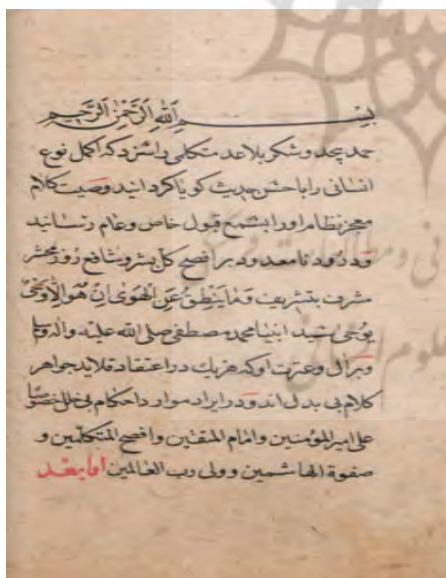 بسم الله الرحمن الرحيم
حمد بیحد و شکر بلاعد متکلمی را سزد که اکمل نوع
انسانی را باحسن حدیث کویا کردانید وصیت کلام
معجز نظام او را بسمع قبول خاص وعام رسانید
ودرود نامعدود بر افصح کل بشر وشافع روز محشر
مشرف بتشریف وما ینطق عن الهوی ان هو الا وحی
یوحی سید انبیا محمد مصطفی صلی الله علیه واله وسلم
وبرال وعترت او که هریک در اعتقاد قلاید جواهر
کلام بی بدل اند ودر ایراد موارد احکام بی خلل خصوصا
علی امیر المؤمنین وامام المتقین وافصح المتکلمین و
صفوة الهاشمین وولی رب العالمین اما بعد